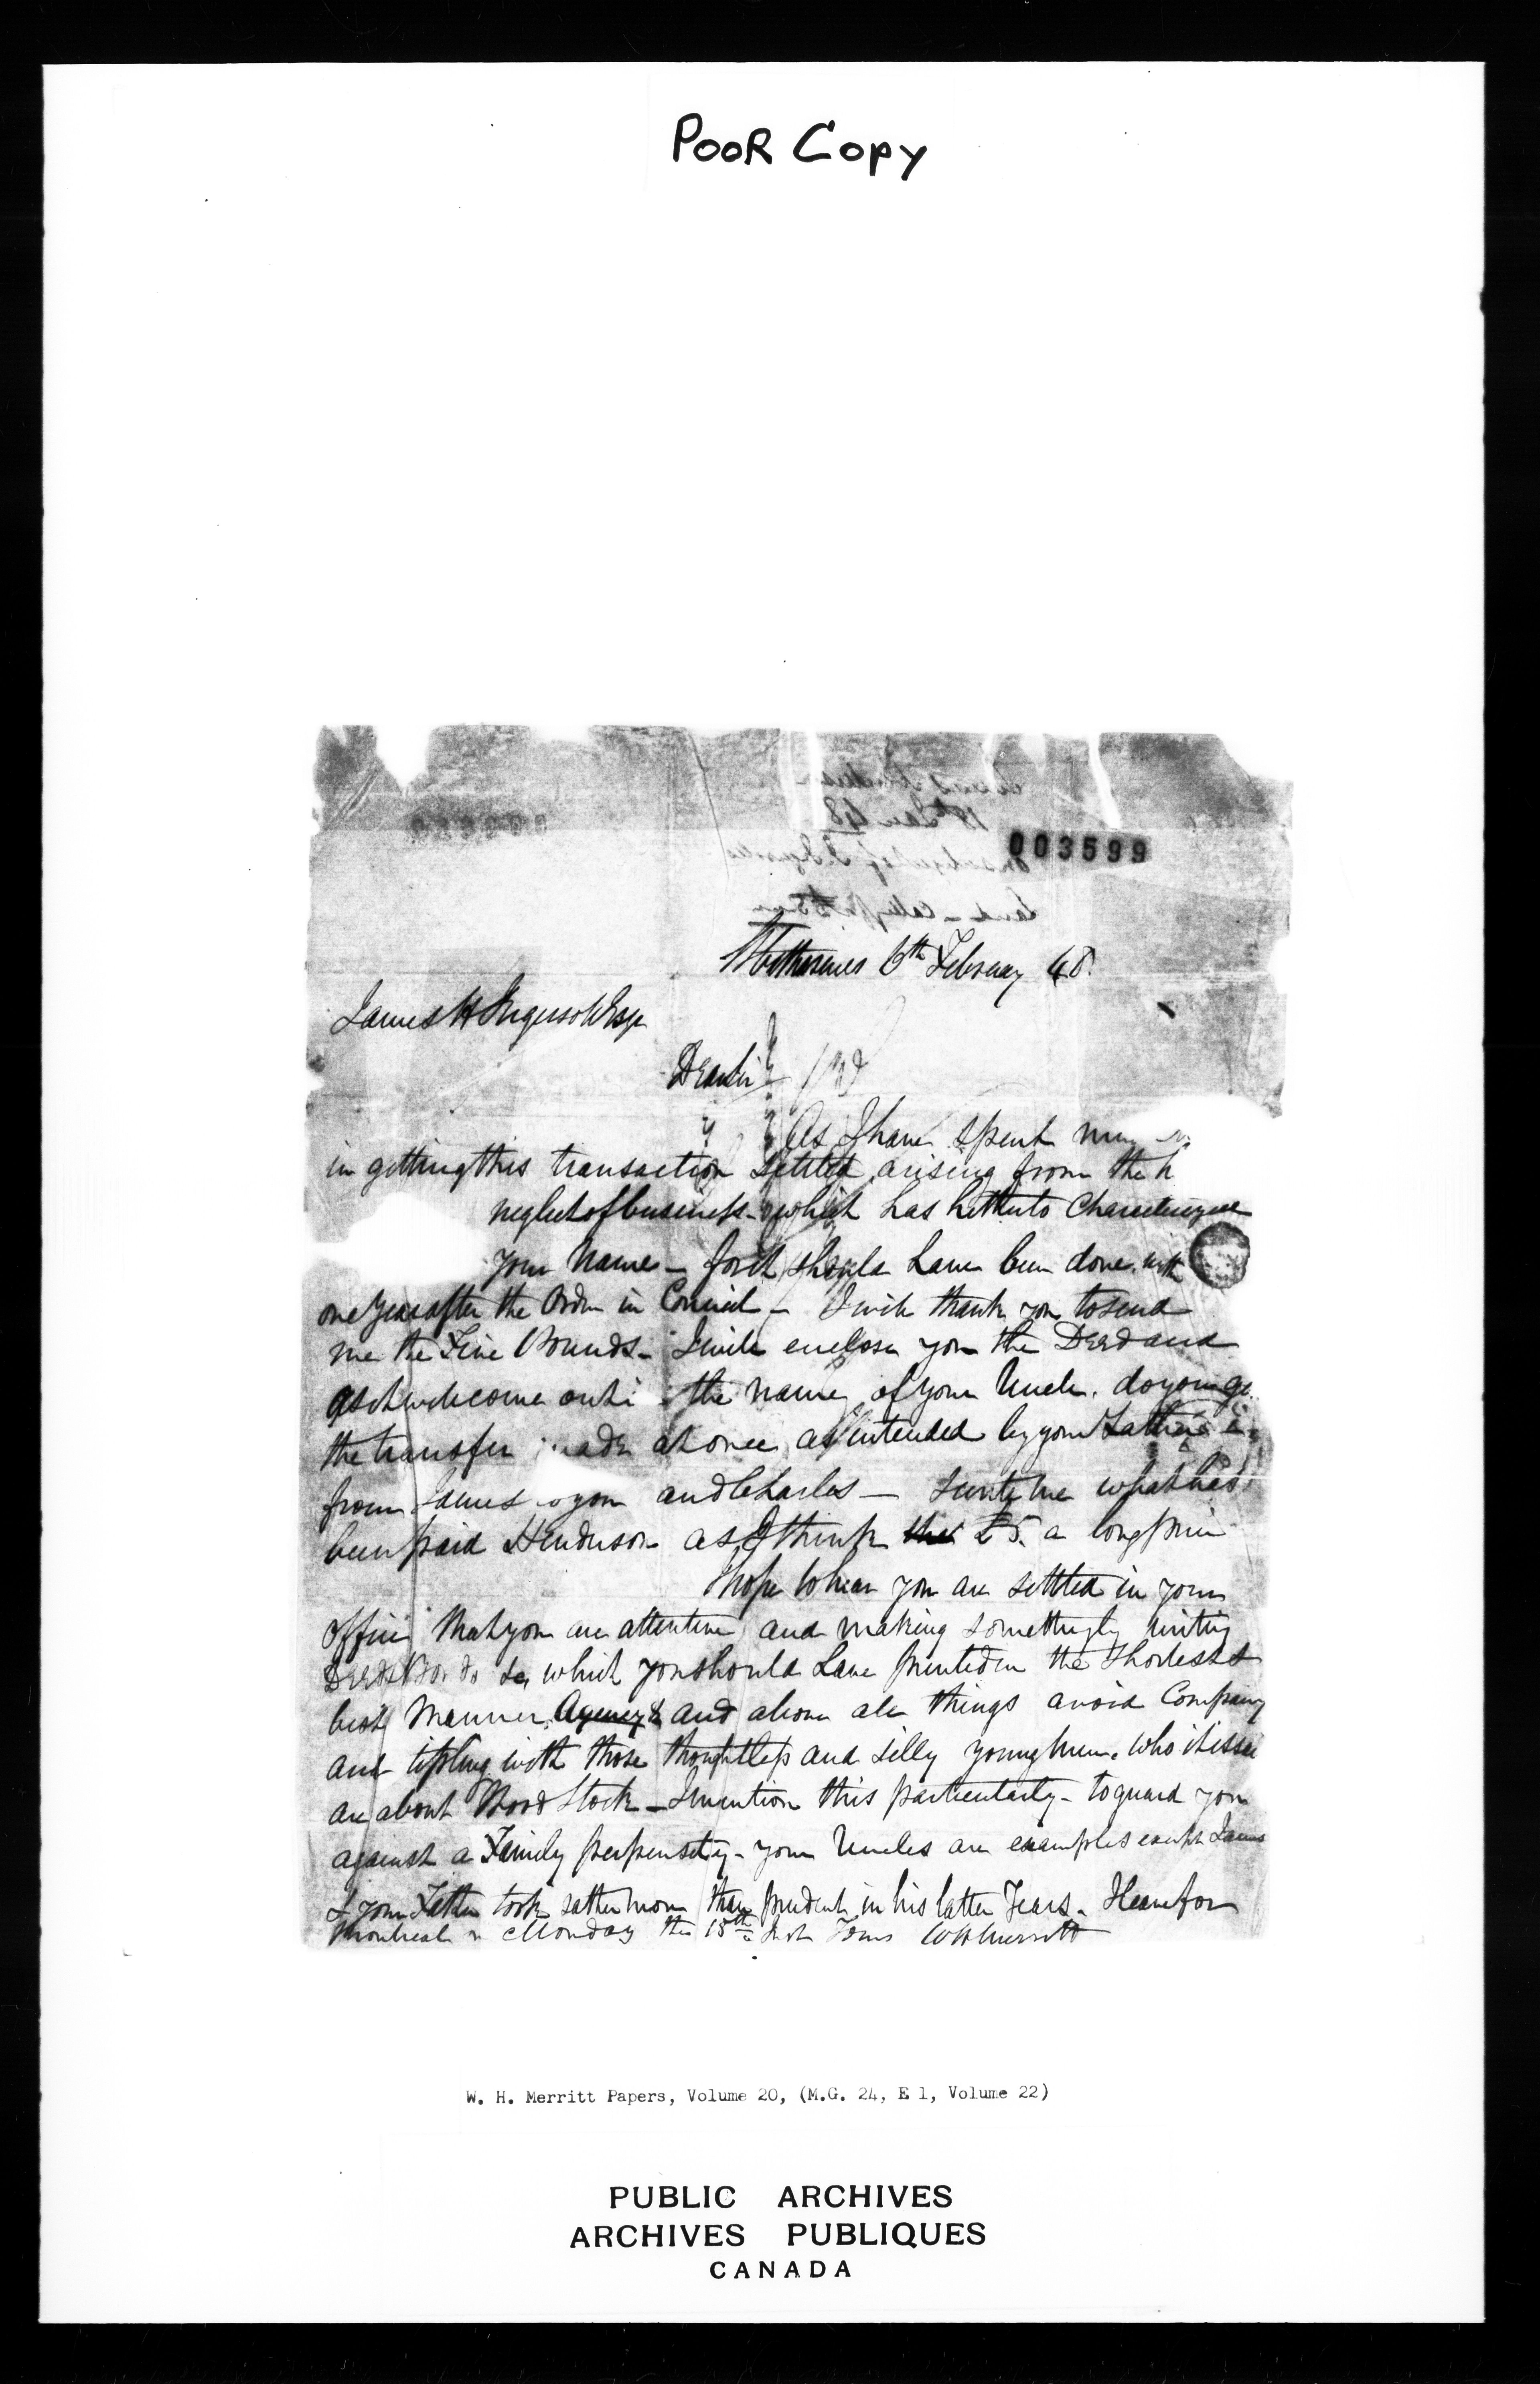 POOR COPY
003599
St Catharines 6th February 48.
James H Ingersoll Esqr
Dear Sir
As I have spent
in getting this transaction settled, arising from the
neglect of business - which has hitherto Characterized
your Name - for it should have been done with
one year after the Order in Council - I will thank you to send
me the Five Pounds - I will enclose you the Deed and
as it will come out i the name of your Uncle. do you ge
the transfer made at once, as intended by your Father
from James to you and Charles - write me what has
been paid Henderson as I think £5. a long price
I hope to hear you are settled in your
office that you are attentive, and making something by writing
Deeds &c, which you should have printed in the Shortest &
best Manner, Agency & and above all things avoid Company
and tipling with those thoughtless and silly young men. who it is said
are about Wood Stock - I mention this particularly - to guard you
against a Family perpensity - your Uncles are examples except James
& your Father took rather more than prudent in his latter Years. I leave for
Montreal on Monday the 15th Inst Yours W H Merritt
W. H. Merritt Papers, Volume 20, (M.G. 24, E 1, Volume 22)
PUBLIC ARCHIVES
ARCHIVES PUBLIQUES
CANADA